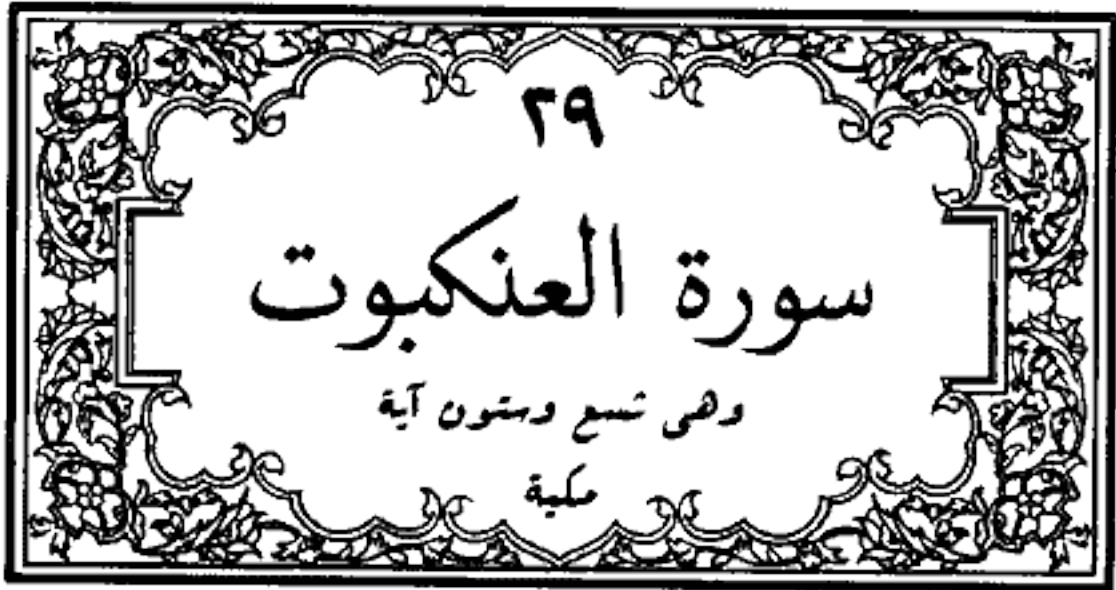 ٢٩
سورة العنكبوت
وهى تسع وستون آية
مكية